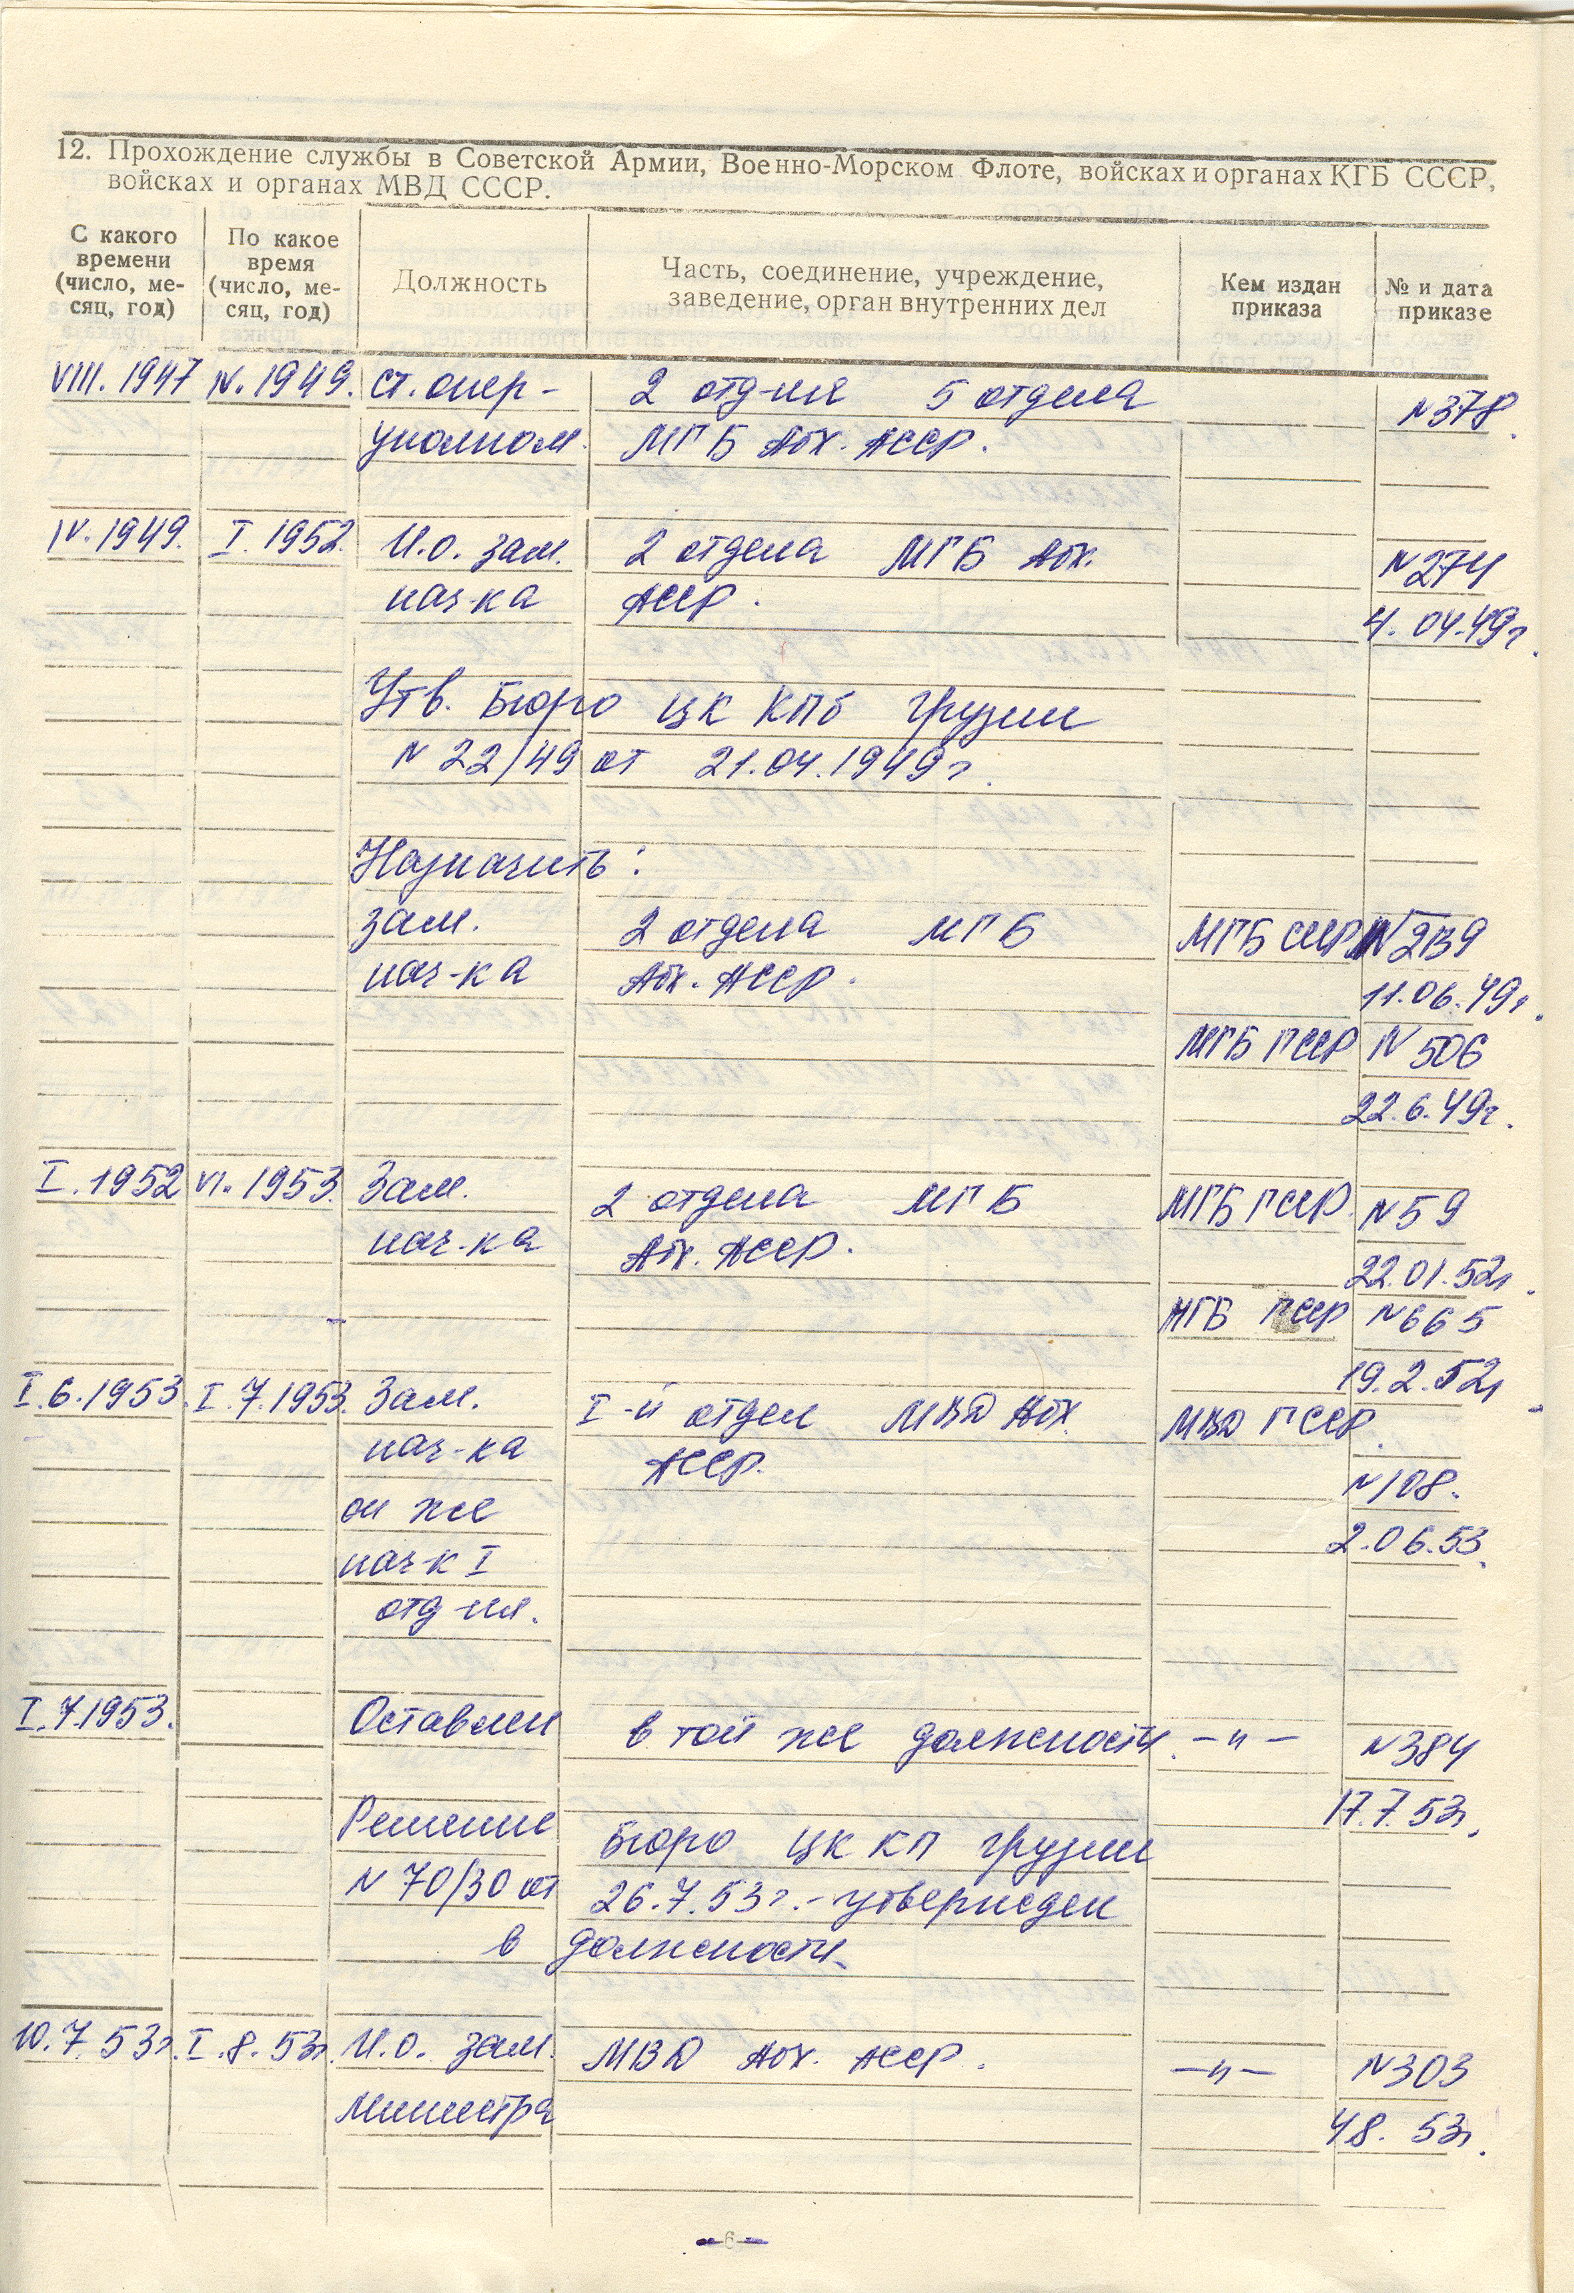 12. Прохождение службы в Советской Армии, Военно-Морском Флоте, войсках и органах КГБ СССР,
войсках и органах МВД СССР.
С какого времени (число, месяц, год) По какое время (число, месяц, год) Должность Часть, соединение, учреждение, заведение, орган внутренних дел Кем издан приказа № и дата приказе
VIII. 1947 IV. 1949. ст. опер- 2 отд-ния 5 отдела N378.
уполном. МГБ Абх. АССР.
IV. 1949. I. 1952. И.О. зам. 2 отдела МГБ Абх. N274
нач-ка АССР. 4. 04. 49г.
Утв. Бюро ЦК КПб Грузии
N 22/49 от 21.04.1949г.
Назначить:
зам. 2 отдела МГБ МГБ СССР N239
нач-ка Абх. АССР. 11.06.49г.
МГБ ГССР N 506
22.6.49г.
I. 1952 VI. 1953. Зам. 2 отдела МГБ МГБ ГССР. N59
нач-ка Абх. АССР. 22.01.52г.
МГБ ГССР N665
19.2.52г
I.6.1953. I.7.1953. Зам. I-й отдел МВД Абх. МВД ГССР.
нач-ка АССР. N108.
он же 2.06.53.
нач-к I
отд-ния.
I.7.1953. Оставлен в той же должности. -"- N384
17.7.53г.
Решение Бюро ЦК КП Грузии
N 70/30 от 26.7.53г. - утвержден
в должности.
10.7.53г. I.8.53г. И.О. зам. МВД Абх. АССР. -"- N303
министра 4 8. 53г.
- 6 -